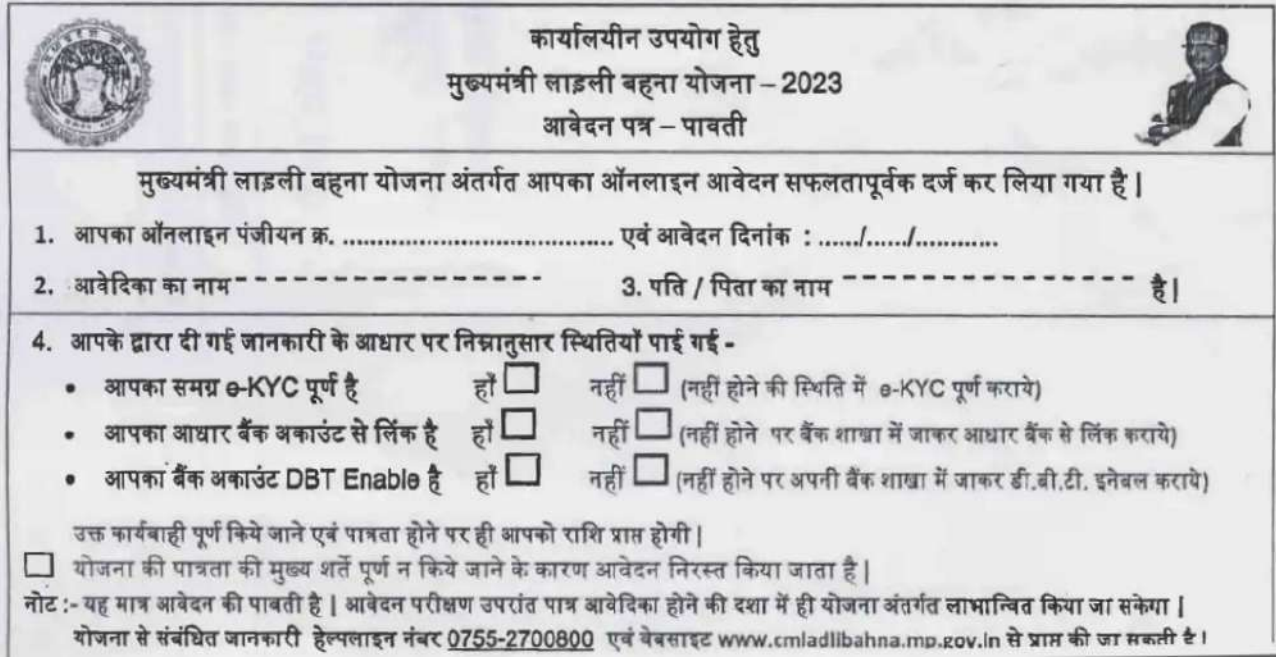 कार्यालयीन उपयोग हेतु
मुख्यमंत्री लाड़ली बहना योजना – 2023
आवेदन पत्र – पावती
मुख्यमंत्री लाड़ली बहना योजना अंतर्गत आपका ऑनलाइन आवेदन सफलतापूर्वक दर्ज कर लिया गया है |
1. आपका ऑनलाइन पंजीयन क्र. ...................................... एवं आवेदन दिनांक : ....../....../............
2. आवेदिका का नाम - - - - - - - - - - - - - - - 3. पति / पिता का नाम - - - - - - - - - - - - - - - है |
4. आपके द्वारा दी गई जानकारी के आधार पर निम्नानुसार स्थितियाँ पाई गई -
• आपका समग्र e-KYC पूर्ण है हाँ ☐ नहीं ☐ (नहीं होने की स्थिति में e-KYC पूर्ण कराये)
• आपका आधार बैंक अकाउंट से लिंक है हाँ ☐ नहीं ☐ (नहीं होने पर बैंक शाखा में जाकर आधार बैंक से लिंक कराये)
• आपका बैंक अकाउंट DBT Enable है हाँ ☐ नहीं ☐ (नहीं होने पर अपनी बैंक शाखा में जाकर डी.बी.टी. इनेबल कराये)
उक्त कार्यवाही पूर्ण किये जाने एवं पात्रता होने पर ही आपको राशि प्राप्त होगी |
☐ योजना की पात्रता की मुख्य शर्ते पूर्ण न किये जाने के कारण आवेदन निरस्त किया जाता है |
नोट :- यह मात्र आवेदन की पावती है | आवेदन परीक्षण उपरांत पात्र आवेदिका होने की दशा में ही योजना अंतर्गत लाभान्वित किया जा सकेगा |
योजना से संबंधित जानकारी हेल्पलाइन नंबर 0755-2700800 एवं वेबसाइट www.cmladlibahna.mp.gov.in से प्राप्त की जा सकती है |